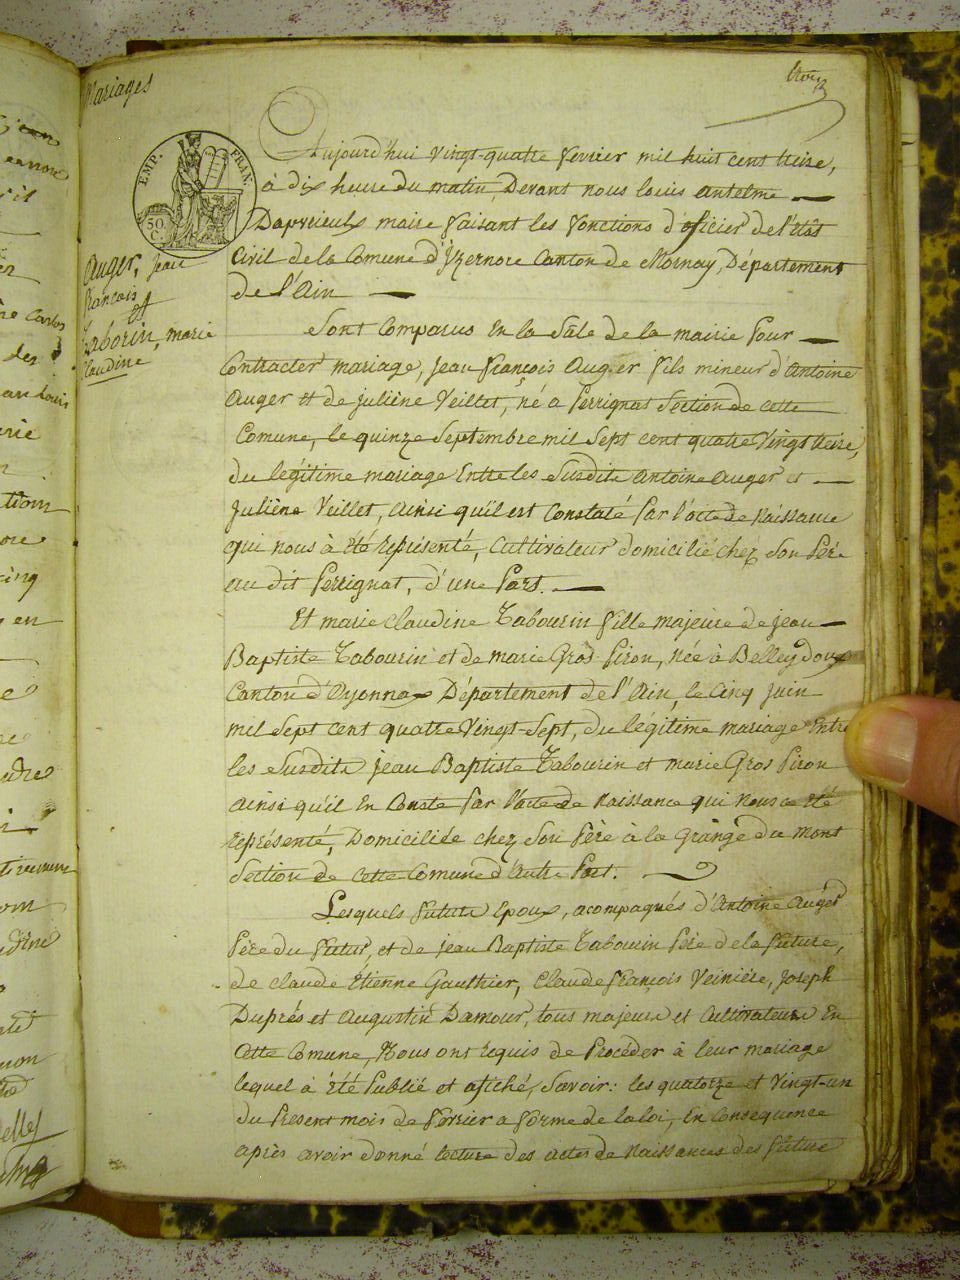 Mariages
trois
EMP. FRAN.
50 C.
Auger, Jean
françois
et
Tabourin, marie
Claudine
Aujourd'hui vingt-quatre fevrier mil huit cent treise,
à dix heure du matin, Devant nous louis antelme
Dapvrieulx maire faisant les fonctions d'oficier de l'état
Civil de la Comune d'Yzernore Canton de Mornay, Département
de l'Ain
Sont Comparus En la Sâle de la mairie pour
Contracter mariage, Jean françois Auger fils mineur d'Antoine
Auger et de Juliène Veillet, né à Perrignat Section de cette
Comune, le quinze Septembre mil Sept cent quatre vingt treise,
du légitime mariage Entre les Susdits Antoine Auger et
Juliène Veillet, Ainsi qu'il est Constaté par l'acte de Naissance
qui nous à été représenté, Cultivateur domicilié chez Son Père
au dit Perrignat, d'une Part.
Et marie Claudine Tabourin fille majeure de jean
Baptiste Tabourin et de marie Gros Piron, née à Belleydoux
Canton d'Oyonnax Département de l'Ain, le Cinq Juin
mil Sept cent quatre vingt-Sept, du légitime mariage Entre
les Susdits Jean Baptiste Tabourin et marie Gros Piron
ainsi qu'il En Conste par l'acte de Naissance qui nous a été
représenté, Domiciliée chez Son Père à la Grange du Mont
Section de Cette Comune d'Autre Part.
Lesquels future Epoux, acompagnés d'Antoine Auger
Père du futur, et de jean Baptiste Tabourin Père de la future,
de claude Etienne Gauthier, Claude françois Veiniére, Joseph
Duprés et Augustin Damour, tous majeurs et Cultivateurs En
Cette Comune, Nous ont requis de Procéder à leur mariage
lequel à été Publié et afiché, Savoir: les quatorze et vingt-un
du Present mois de fevrier a forme de la loi, En Conséquence
après avoir donné lecture des actes de Naissances des future